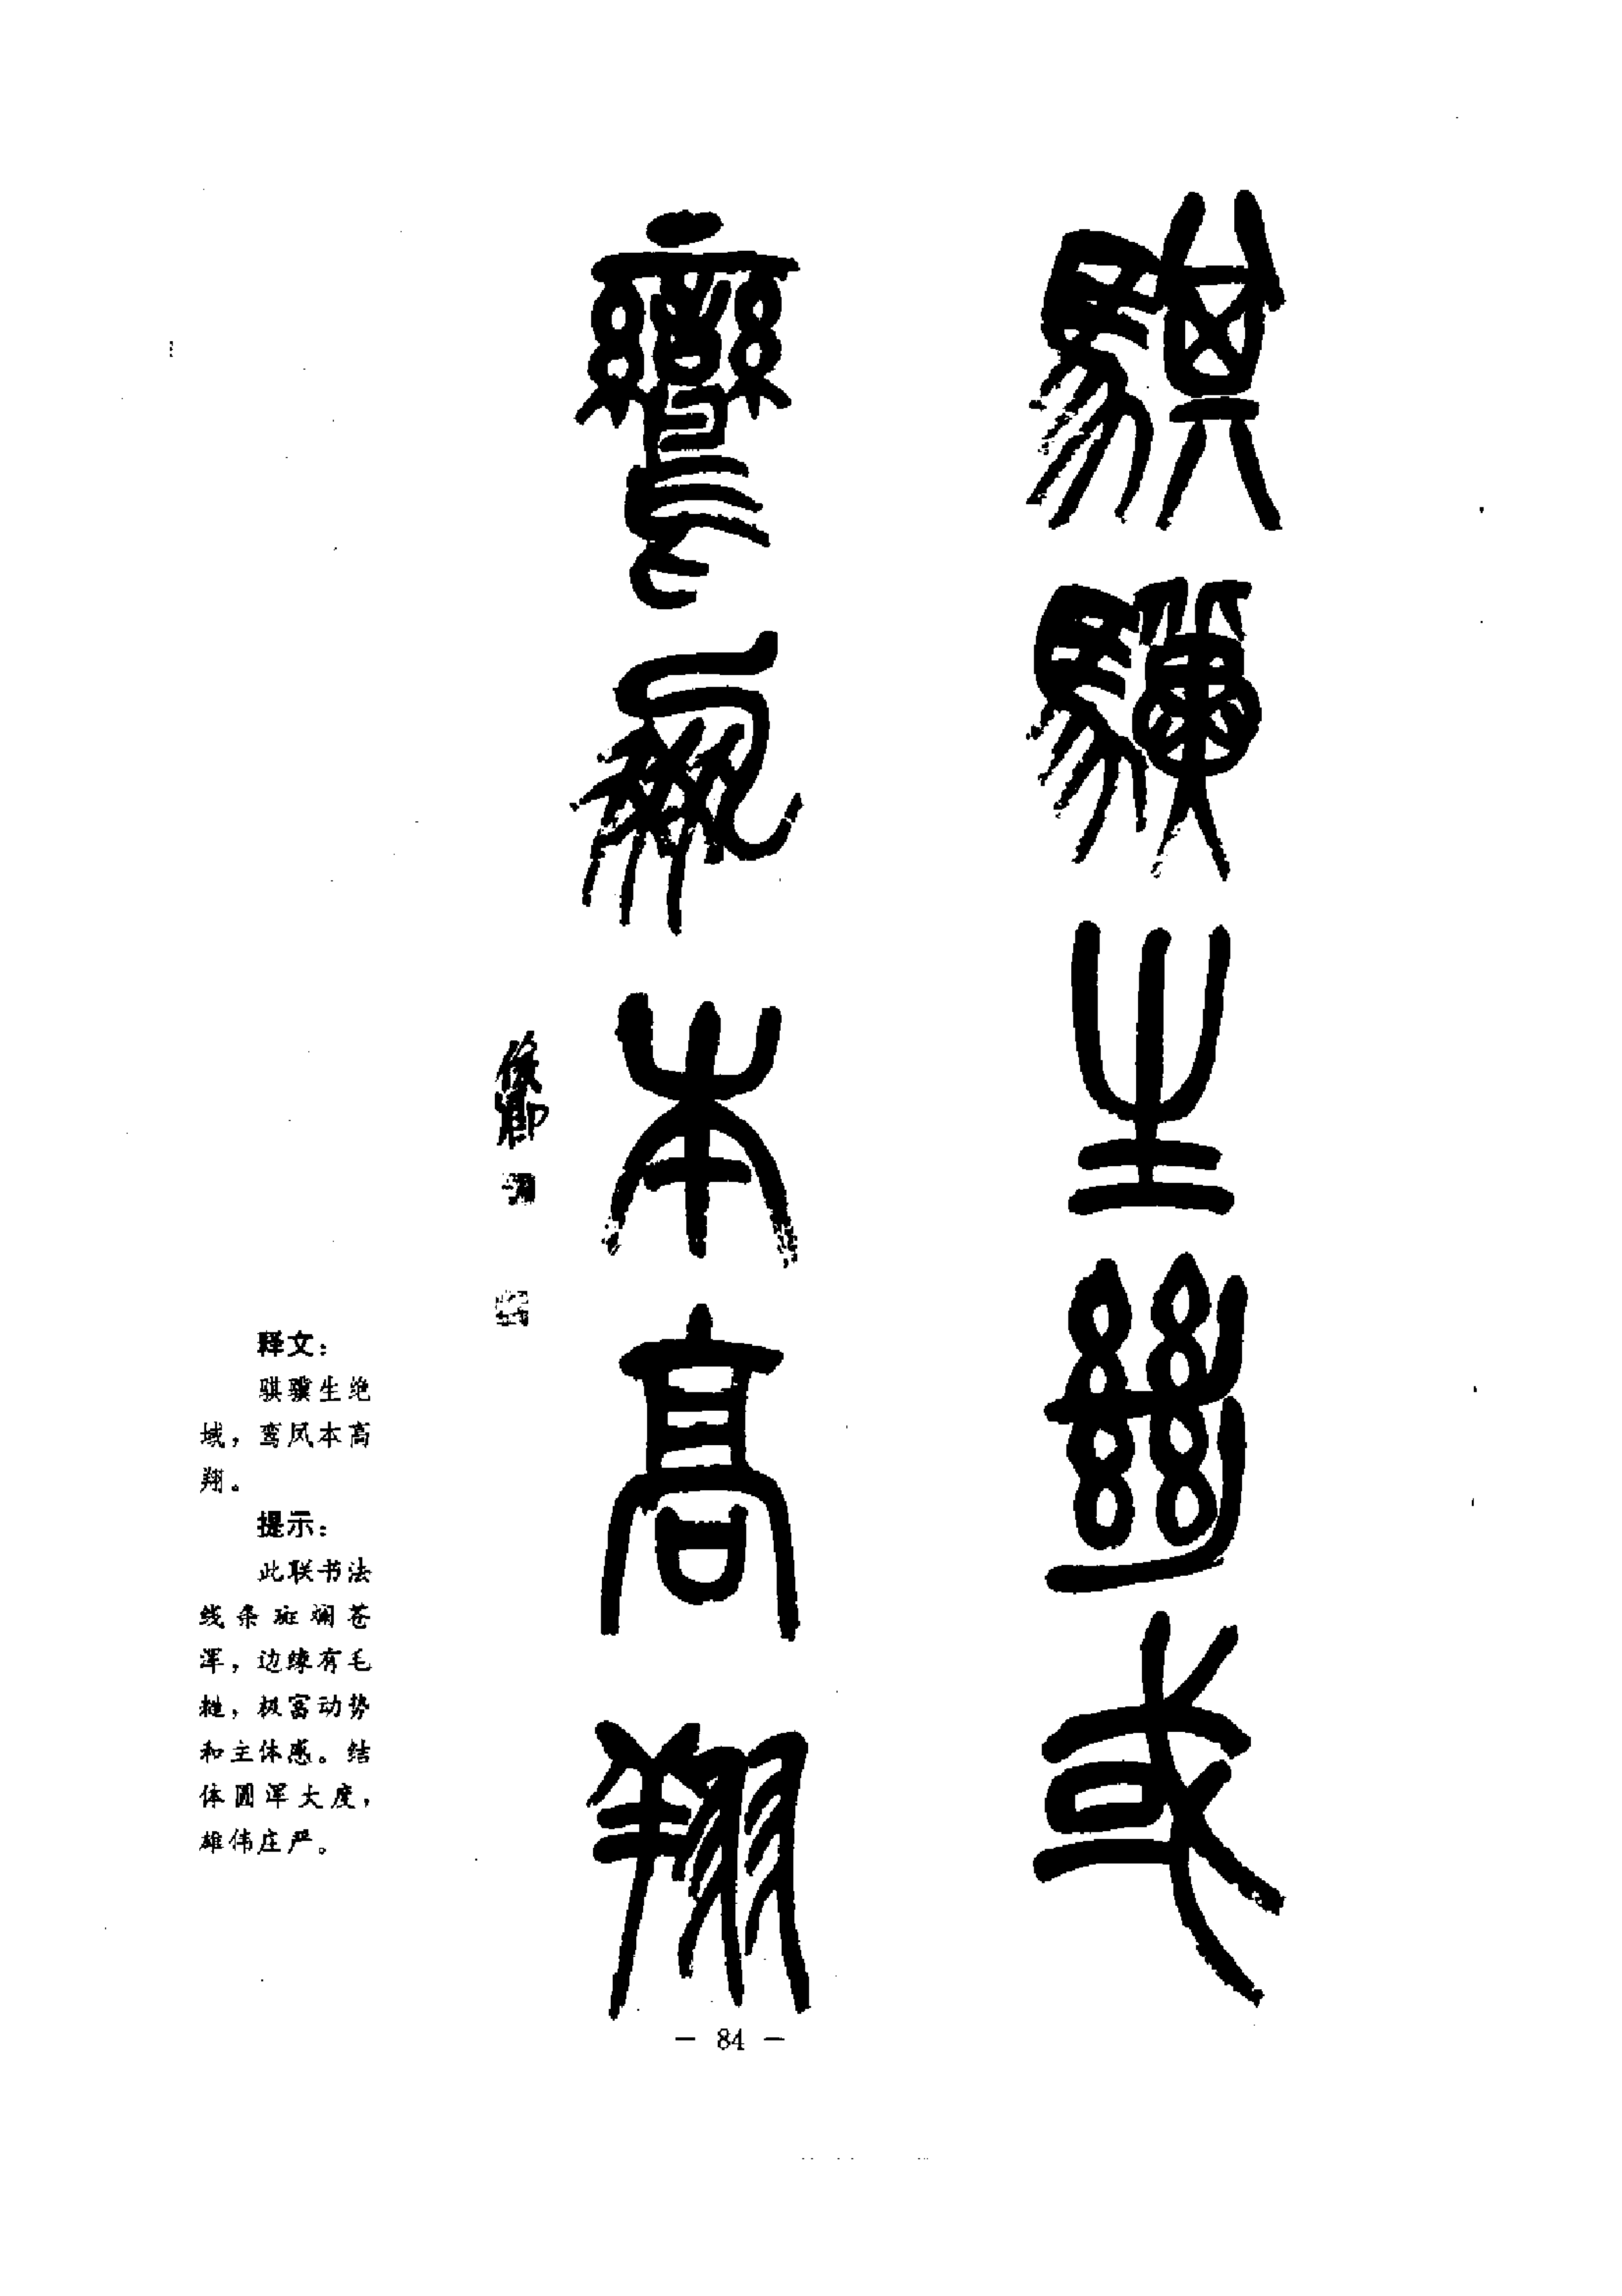 騏驥生𢇍或
鸞鳳本高翔
俊卿
释文：
骐骥生绝
域，鸾凤本高
翔。
提示：
此联书法
线条斑斓苍
浑，边缘有毛
糙，极富动势
和主体感。结
体圆浑大度，
雄伟庄严。
— 84 —